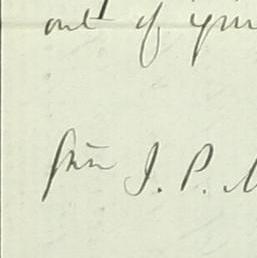 out of your
from J. P.